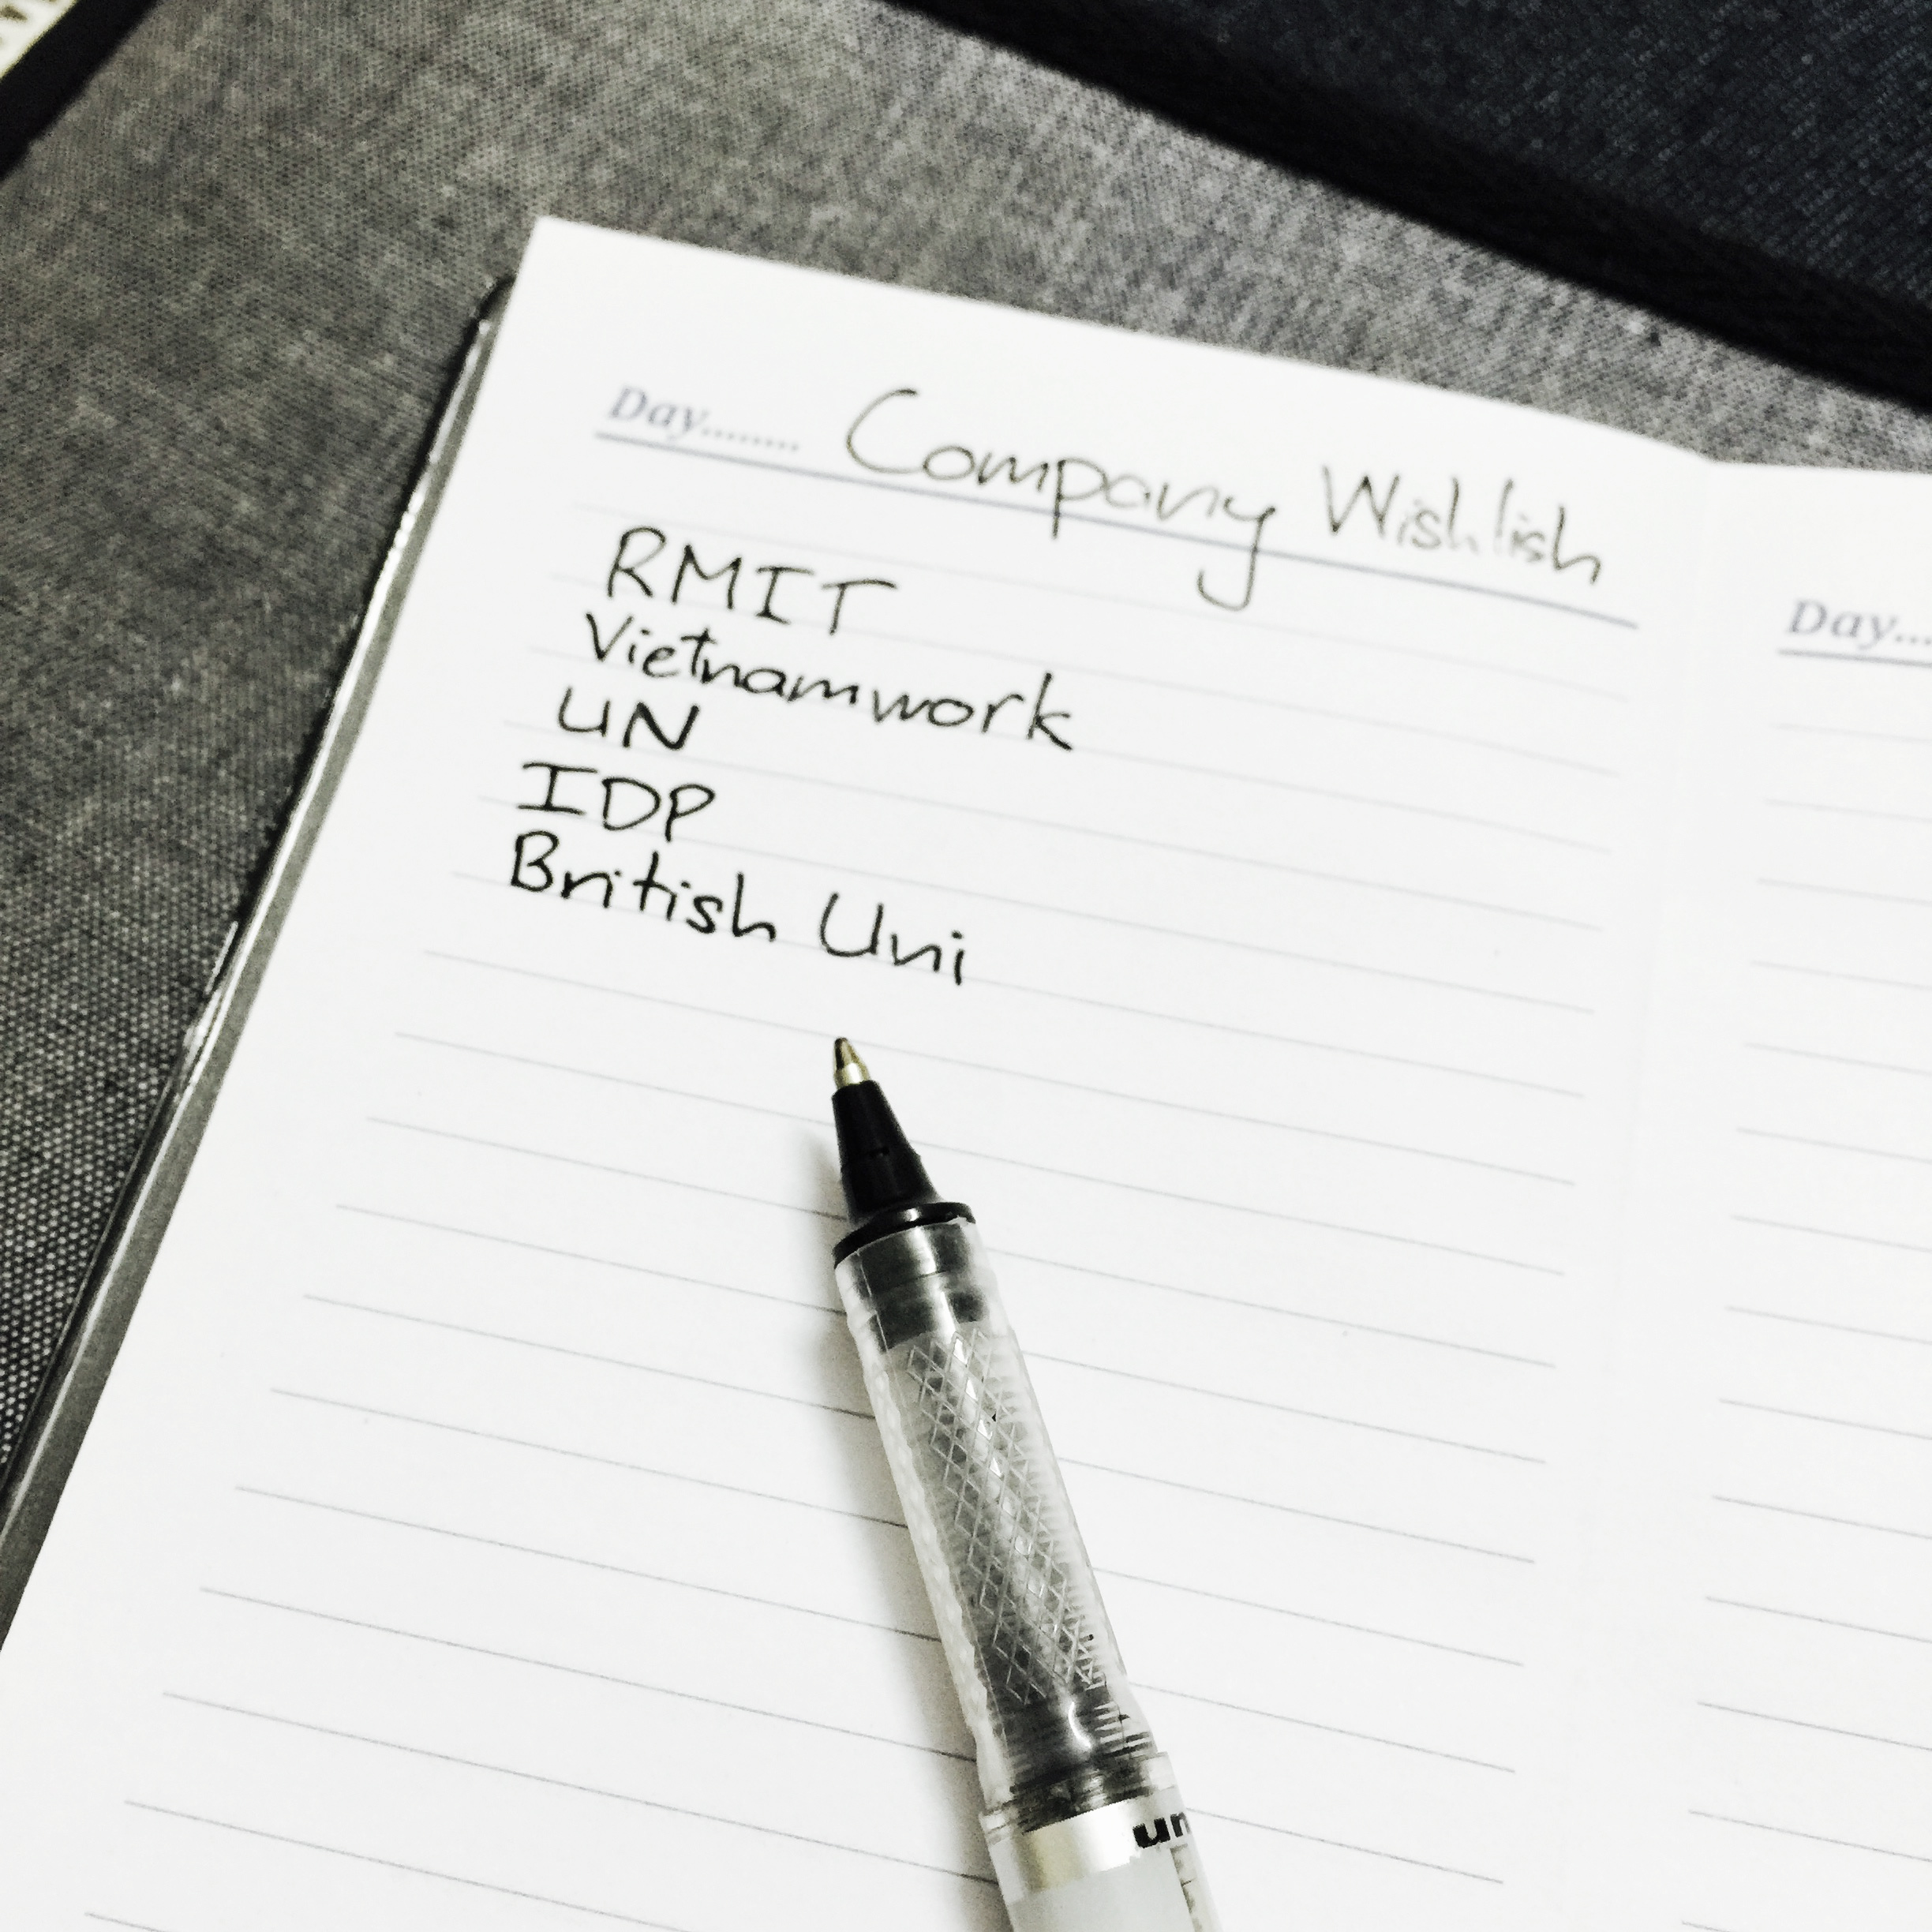 Day........ Company Wishlish
RMIT
Vietnamwork
UN
IDP
British Uni
Day....
un